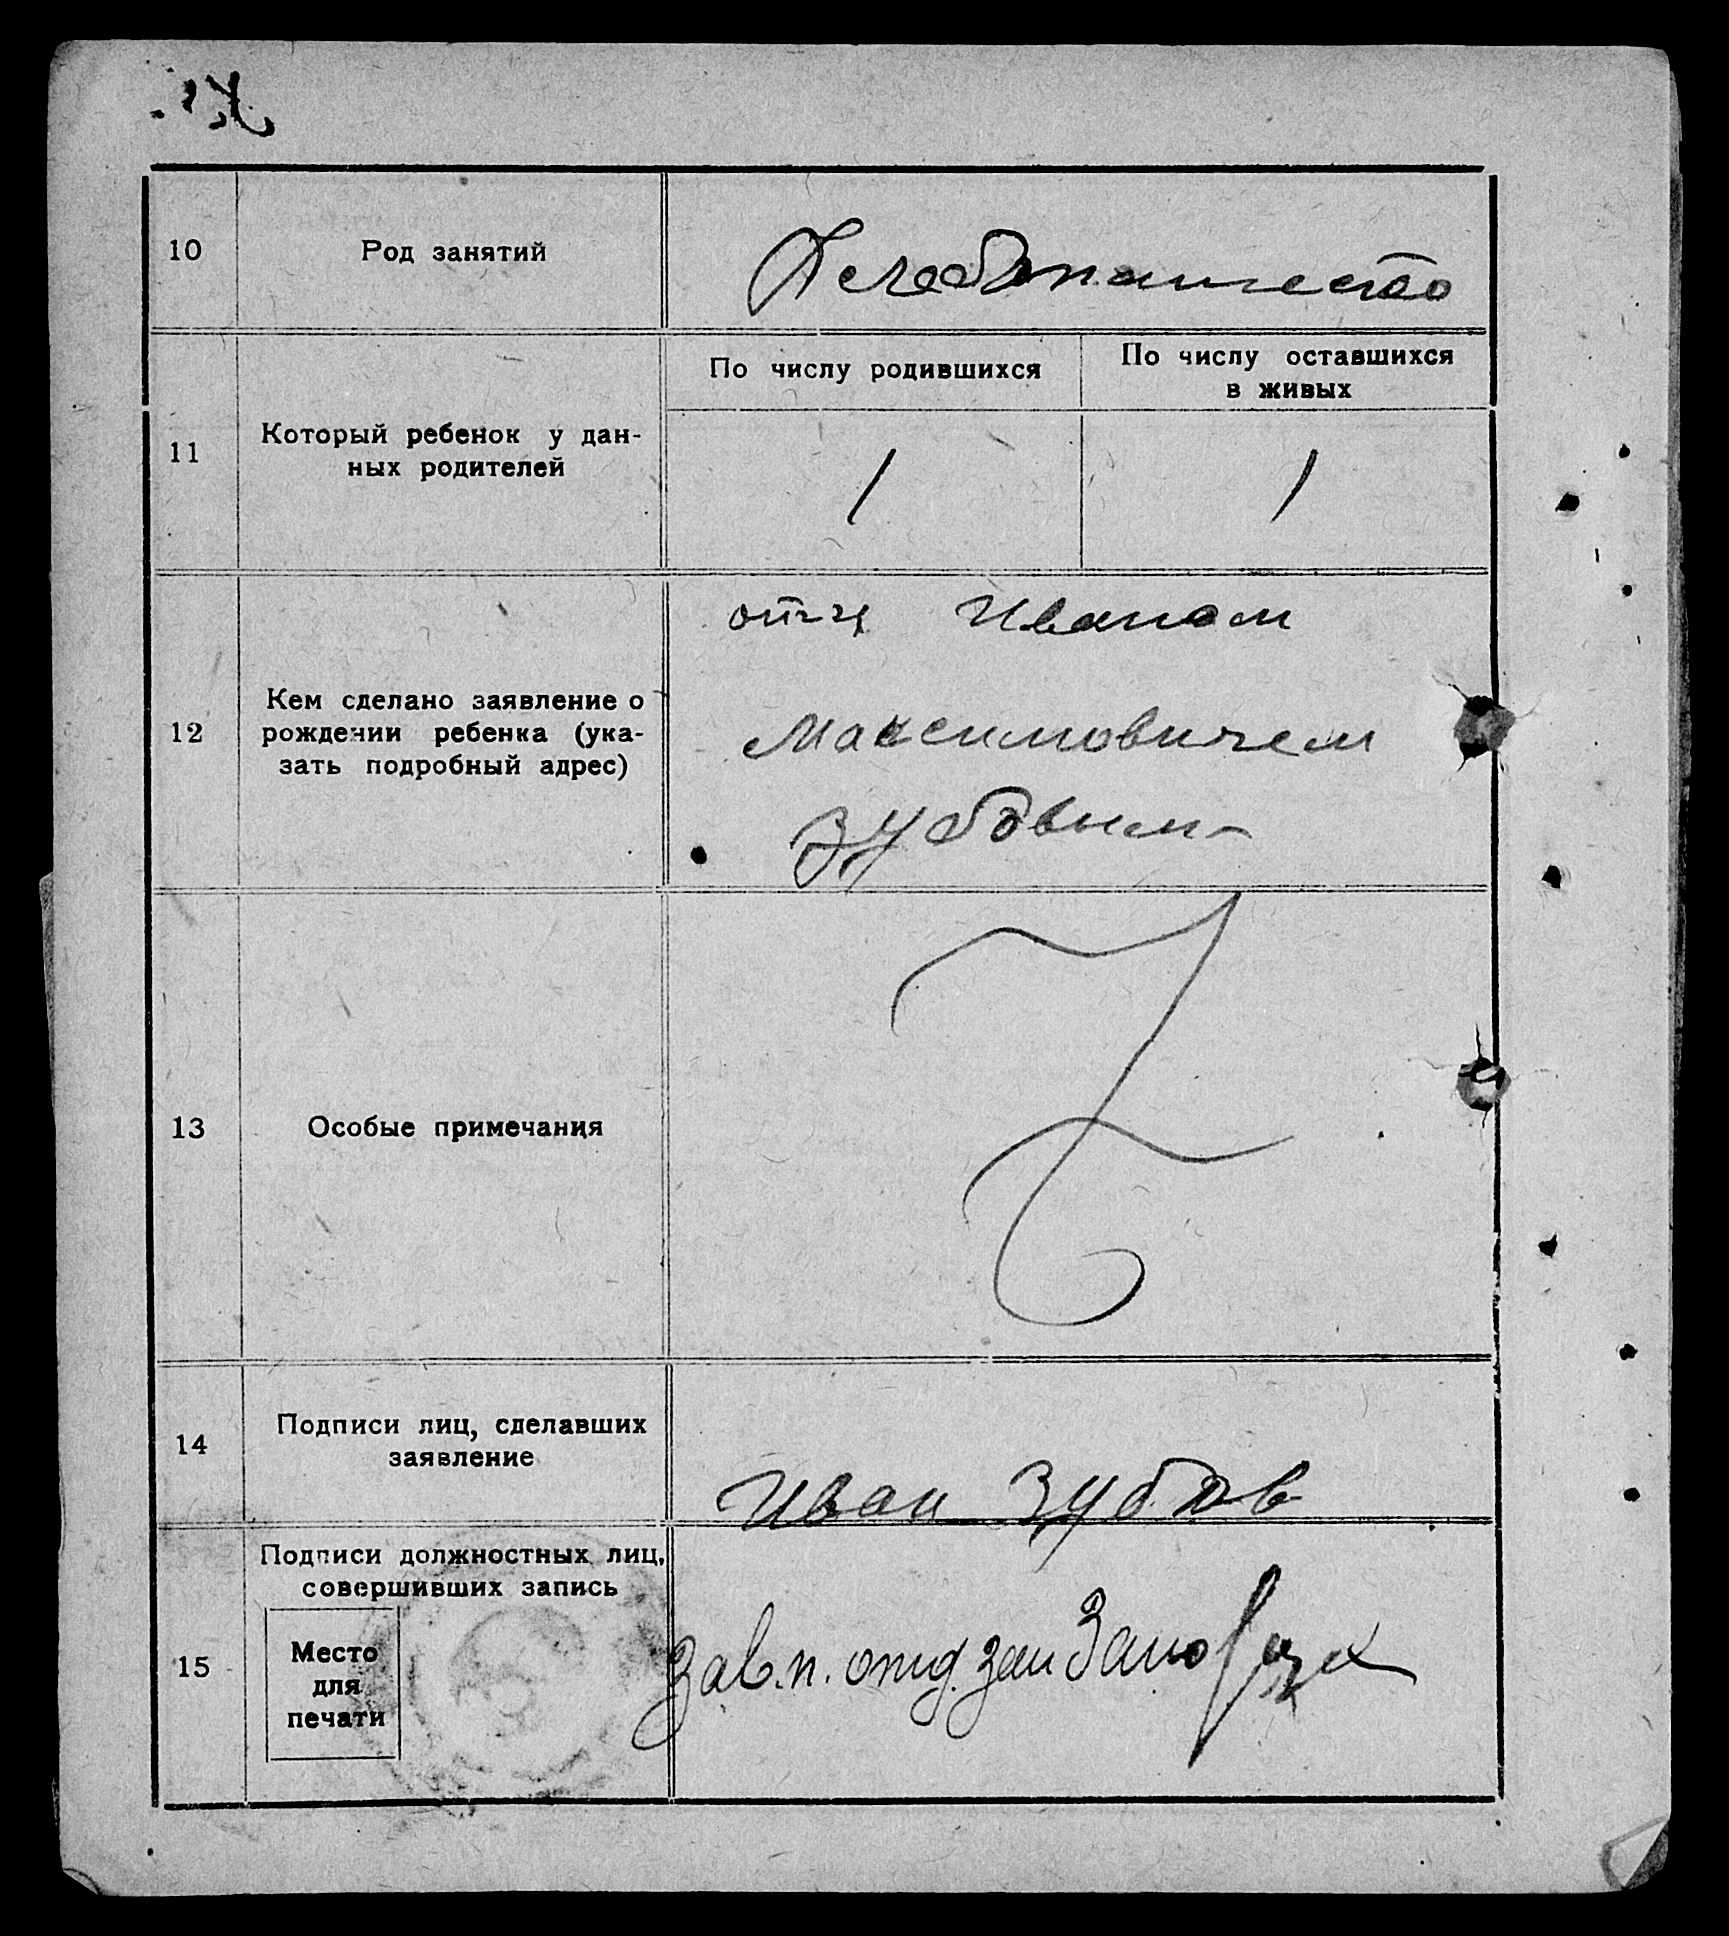 10
Род занятий
Хлебопашество
11
Который ребенок у дан-
ных родителей
По числу родившихся
По числу оставшихся
в живых
1
1
12
Кем сделано заявление о
рождении ребенка (ука-
зать подробный адрес)
Иваном
Максимовичем
Зубовым
13
Особые примечания
14
Подписи лиц, сделавших
заявление
Иван Зубов
15
Подписи должностных лиц,
совершивших запись
Место
для
печати
Зав. п. отд.